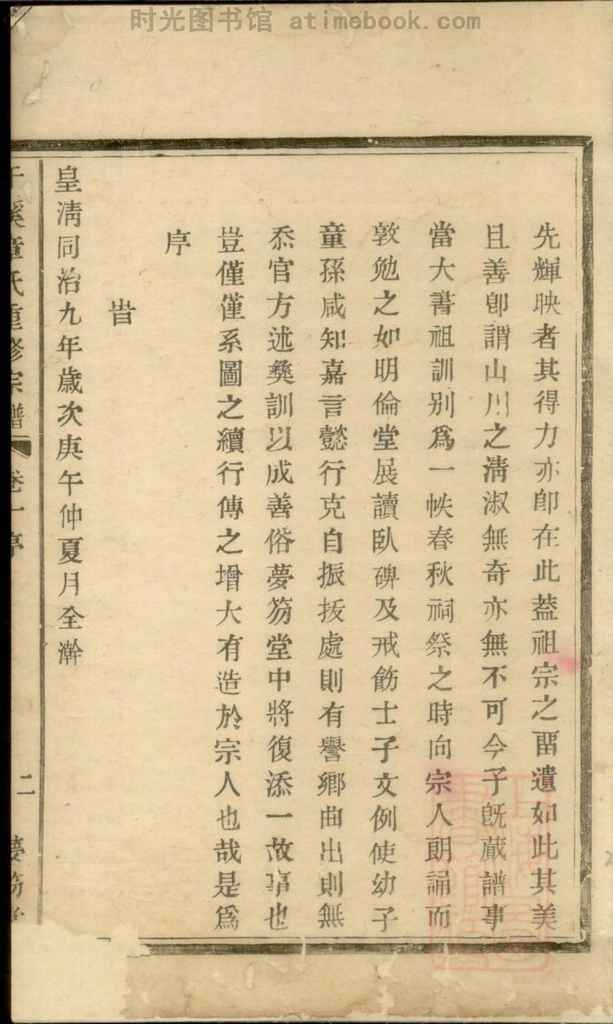 时光图书馆 atimebook.com
先輝映者其得力亦卽在此葢祖宗之畱遺如此其美
且善卽謂山川之淸淑無奇亦無不可今子旣蕆譜事
當大書祖訓别爲一帙春秋祠祭之時向宗人朗誦而
敦勉之如明倫堂展讀臥碑及戒飭士子文例使幼子
童孫咸知嘉言懿行克自振拔處則有譽鄉曲出則無
忝官方述彝訓以成善俗夢笏堂中將復添一故事也
豈僅僅系圖之續行傳之增大有造於宗人也哉是爲
序
旹
皇淸同治九年歲次庚午仲夏月全澣
溪章氏重修宗譜 卷一序 二